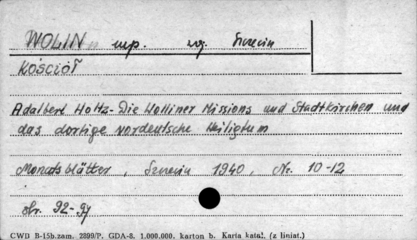 WOLIN wyp. woj. Szczecin
KOŚCIÓŁ
Adalbert Holtz - Die Wolliner Missions und Stadtkirchen und
das dortige vordeutsche Heiligtum
Monatsblätter, Szczecin 1940, Nr. 10-12
str. 92-94
CWD B-15b.zam. 2899/P. GDA-8. 1.000.000. karton b. Karta katal. (z liniat.)